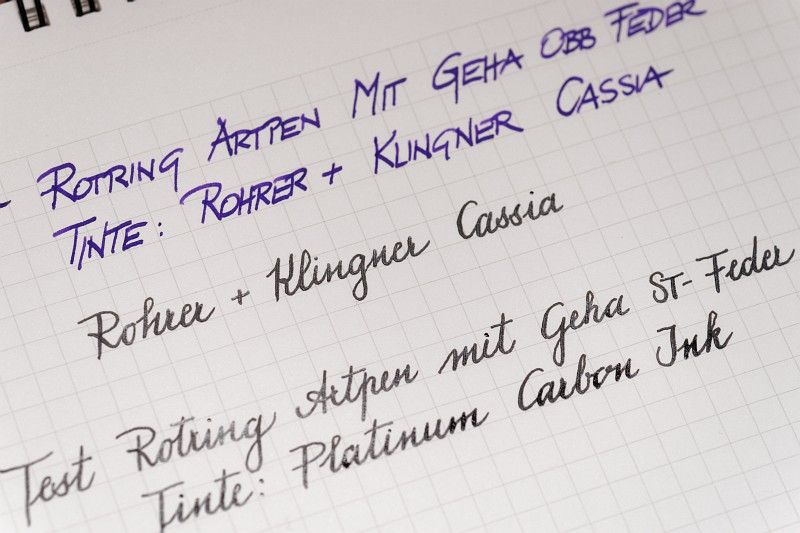 - ROTRING ARTPEN MIT GEHA OBB FEDER
TINTE: ROHRER + KLINGNER CASSIA
Rohrer + Klingner Cassia
Test Rotring Artpen mit Geha ST-Feder
Tinte: Platinum Carbon Ink